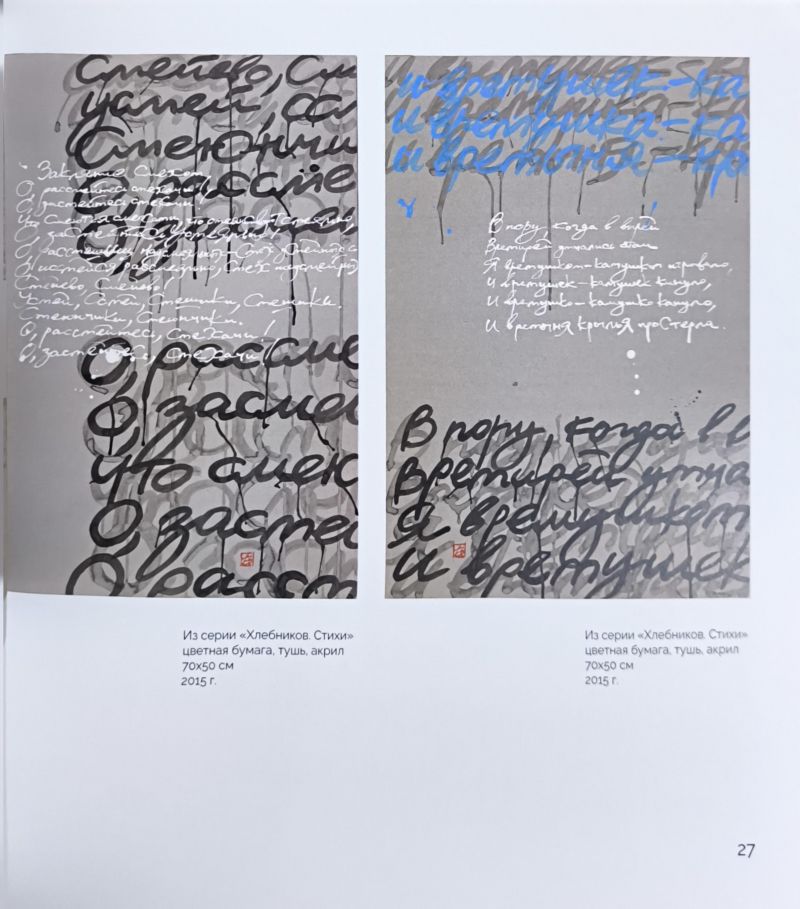 Смейево, См
усмей, осм
Смеюнчи
рассме
Заклятие Смехом
О, рассмейтесь смехачи!
О, засмейтесь смехачи
Что смеются смехами, что смеянствуют смеяльно,
О, засмейтесь усмеяльно!
О, рассмешищ надсмеяльных - смех усмейных с
О, иссмейся, рассмеяльно, смех
Смейево, Смейево!
Усмей, Осмей, Смешики, Смешики.
Смеюнчики, Смеюнчики.
О, рассмейтесь, смехачи!
О, засмейтесь, смехачи!
О, рассме
О, засме
Что смею
О, засмей
О рассм
и времушек-ка
и времушка-ка
и времыня-кр
В пору, когда в вырей
Времирей умчались стаи
Я времушком-камушком игрывало,
И времушек-камушек кинуло,
И времушко-камушко кануло,
И времыня крылья простерла.
В пору, когда в в
времирей умча
Я времушком
и времушек
Из серии «Хлебников. Стихи»
цветная бумага, тушь, акрил
70x50 см
2015 г.
Из серии «Хлебников. Стихи»
цветная бумага, тушь, акрил
70x50 см
2015 г.
27